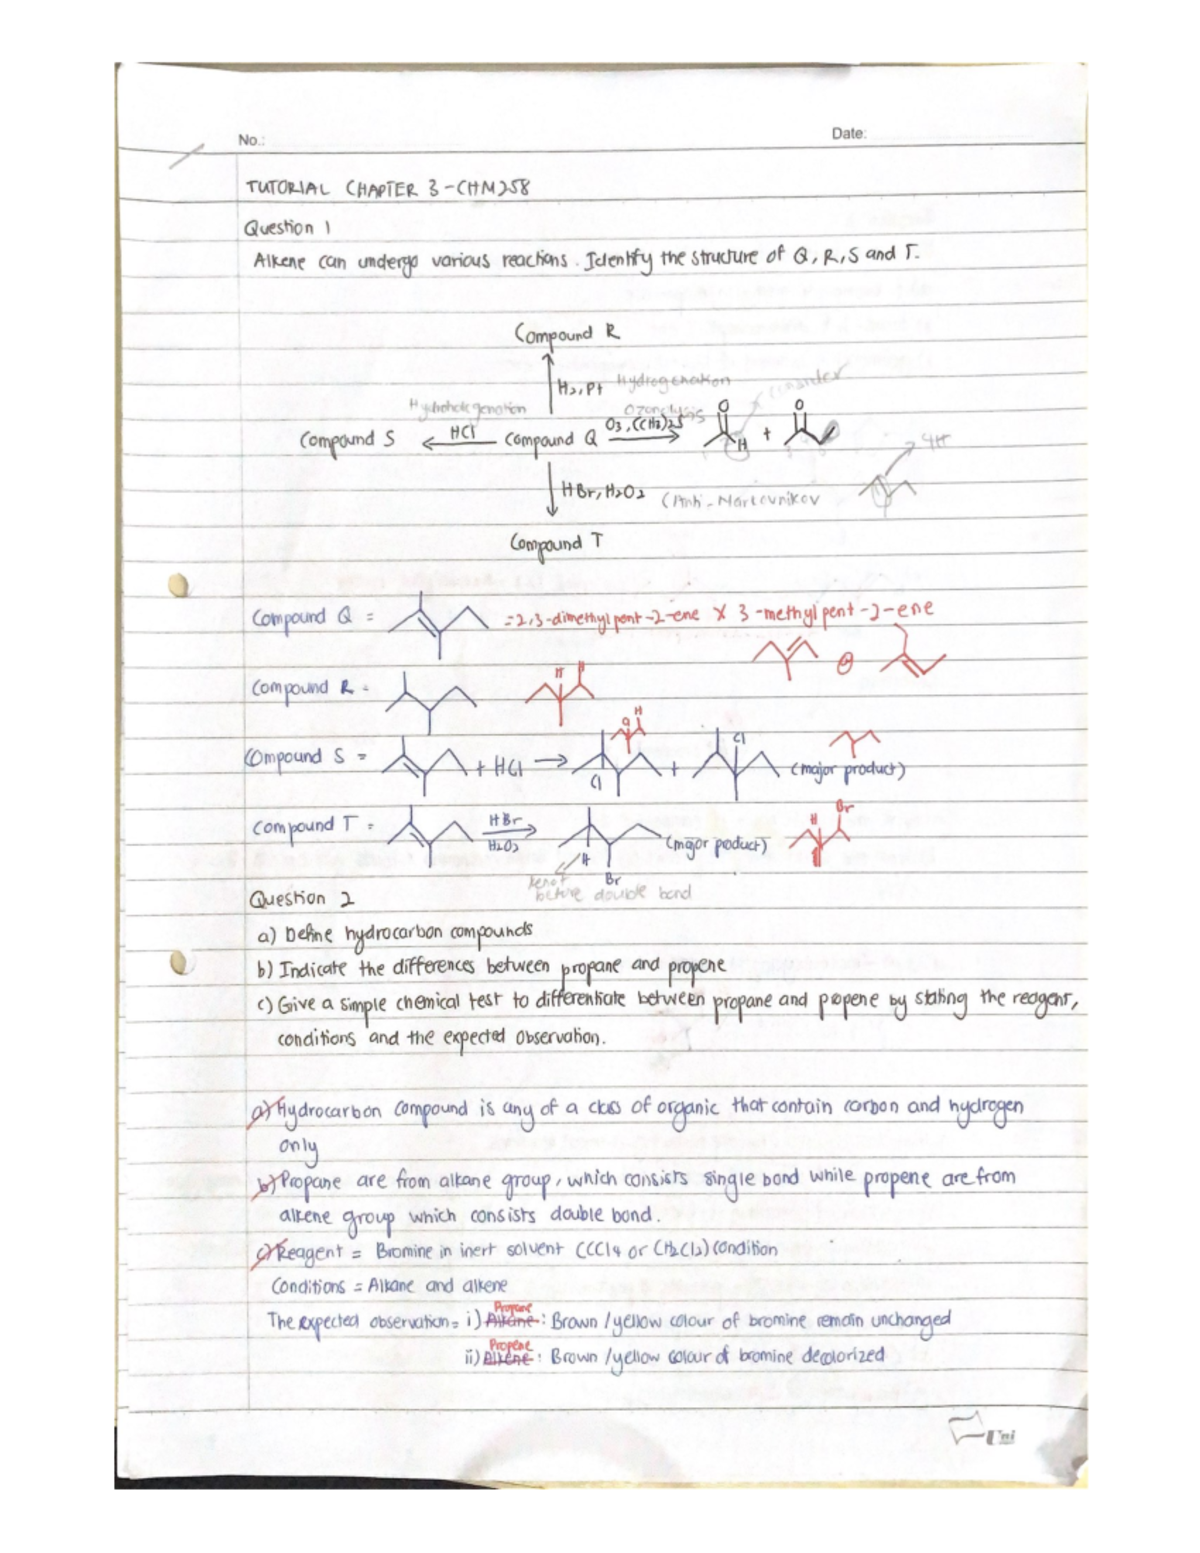 No.:
Date:
TUTORIAL CHAPTER 3 - CHM258
Question 1
Alkene can undergo various reactions. Identify the structure of Q, R, S and T.
Compound R
H2, Pt Hydrogenation
Ozonolysis
O3, (CH3)2S
Compound S HCl Compound Q
O
H
+
O
4H
HBr, H2O2 (Anti-Markovnikov
Compound T
Compound Q = = 2,3-dimethylpent-2-ene X 3-methylpent-2-ene
Compound R =
H
H
Compound S = + HCl → Cl + Cl (major product)
Cl H
Compound T = HBr H2O2 H Br (major product) H Br
before double bond
Question 2
a) Define hydrocarbon compounds
b) Indicate the differences between propane and propene
c) Give a simple chemical test to differentiate between propane and propene by stating the reagent,
conditions and the expected observation.
a) Hydrocarbon compound is any of a class of organic that contain carbon and hydrogen
only
b) Propane are from alkane group, which consists single bond while propene are from
alkene group which consists double bond.
c) Reagent = Bromine in inert solvent (CCl4 or CH2Cl2) condition
Conditions = Alkane and alkene
The expected observation = i) Alkane Propane : Brown / yellow colour of bromine remain unchanged
ii) Alkene Propene : Brown / yellow colour of bromine decolorized
Uni